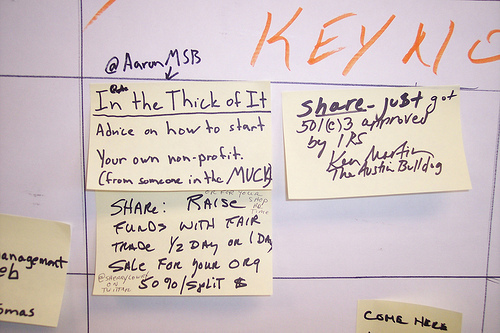 KEY
@AaronMSB
In the Thick of It
Advice on how to start
Your own non-profit.
(from someone in the MUCK)
SHARE: RAISE
OR FOR YOUR
SHOP
TIME
FUNDS WITH FAIR
TRADE 1/2 DAY OR 1 DAY
SALE FOR YOUR ORG
ON
TWITTER
50%/SPLIT $
Share - just got
501(c)3 approved
by IRS
Ken Martin
The Austin Bulldog
anagement
eb
omas
COME HERE